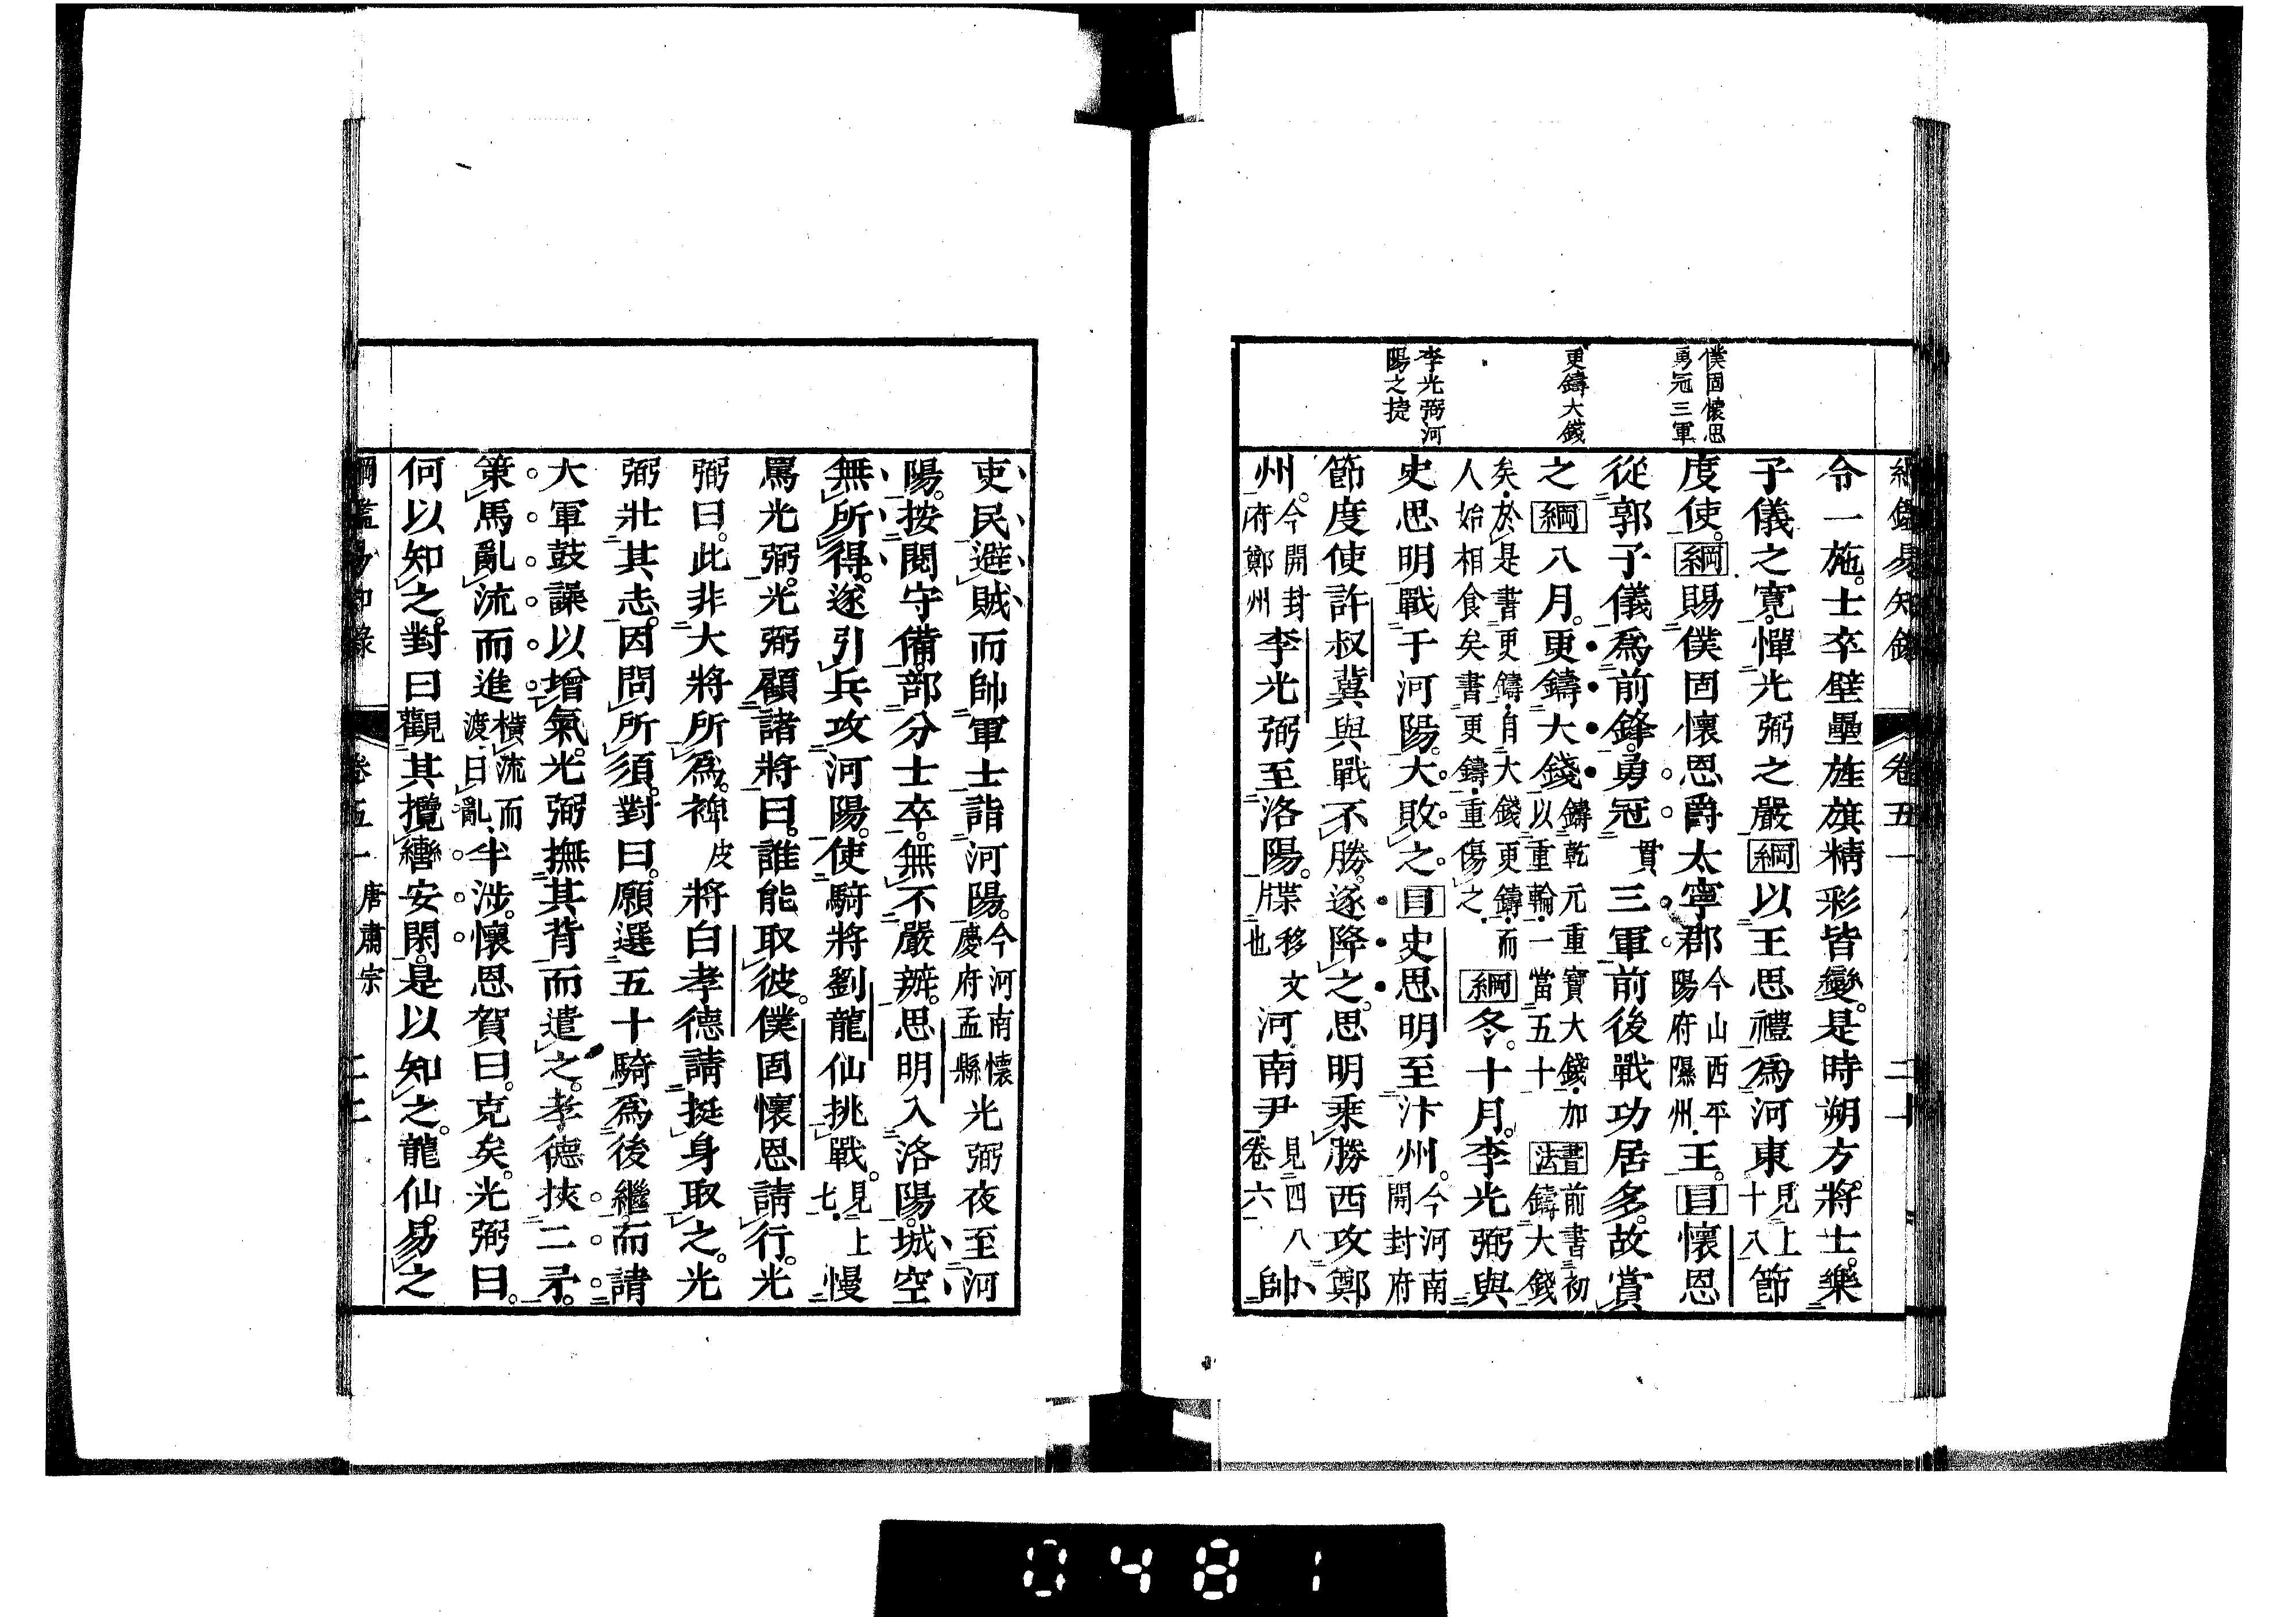 綱鑑易知錄 卷五一 二十
僕固懷恩
勇冠三軍
更鑄大錢
李光弼河
陽之捷
令一施。士卒壁壘旌旗精彩皆變。是時朔方將士。樂
子儀之寬。憚光弼之嚴綱以王思禮爲河東見上十八節
度使。綱賜僕固懷恩爵太寧郡今山西平陽府隰州。王。目懷恩
從郭子儀爲前鋒。勇冠貫三軍前後戰功居多。故賞
之綱八月。更鑄大錢鑄乾元重寶大錢。加以重輪。一當五十書法前書初鑄大錢
矣。於是書更鑄。自大錢更鑄。而人始相食矣書更鑄。重傷之。綱冬。十月。李光弼與
史思明戰于河陽。大敗之。目史思明至汴州。今河南開封府
節度使許叔冀與戰不勝。遂降之。思明乘勝西攻鄭
州。今開封府鄭州李光弼至洛陽。牒移文也河南尹見四八卷六帥
吏民避賊而帥軍士詣河陽。今河南懷慶府孟縣光弼夜至河
陽。按閱守備。部分士卒。無不嚴辦。思明入洛陽。城空
無所得。遂引兵攻河陽。使騎將劉龍仙挑戰。見上七。慢
罵光弼。光弼顧諸將曰。誰能取彼。僕固懷恩請行。光
弼曰。此非大將所爲。裨皮將白孝德請挺身取之。光
弼壯其志。因問所須。對曰。願選五十騎爲後繼。而請
大軍鼓譟以增氣。光弼撫其背而遣之。孝德挾二矛。
策馬亂流而進橫流而渡。曰亂。半涉。懷恩賀曰。克矣。光弼曰。
何以知之。對曰觀其攬轡安閑。是以知之。龍仙。易之
綱鑑易知錄 卷五一 唐肅宗 二十
0481